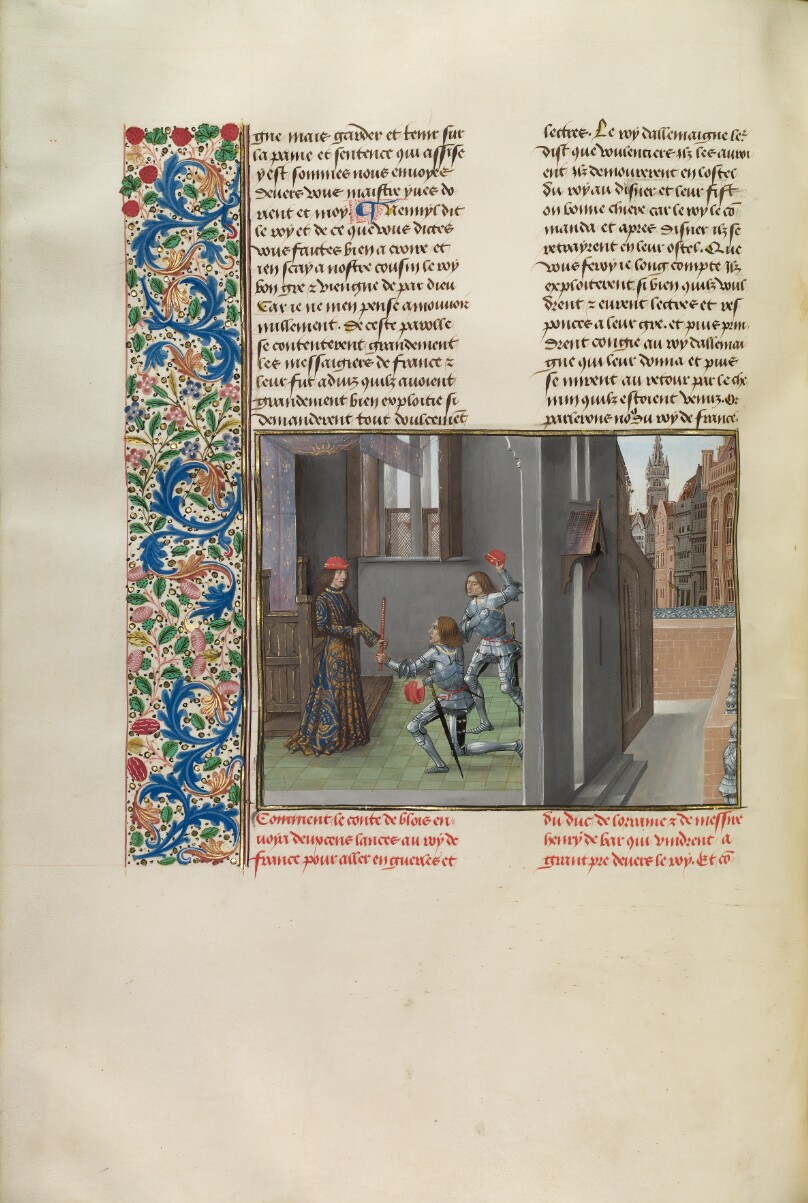 gne mais garder et tenir sur
la paine et sentence qui assise
y est sommes nous envoyez
devers vous maistre yves do
rient et moy. Quennyl dit
le roy et de ce que vous dictes
vous faictes bien a croire et
ien scay a nostre cousin le roy
bon gre z viengne de par dieu
Car ie ne men pense a mouvoir
nullement. De ceste parolle
se contenterent grandement
les messaigiers de france z
leur fut aduiz quilz auoient
grandement bien exploitie si
demanderent tout doulcement
lectres. Le roy dallemaigne le
dist que voulentiers ilz les auroi
ent ilz demourerent en lostel
du roy au disner et leur fist
on bonne chiere car le roy le co
manda et apres disner ilz se
retrayrent en leur ostel. Que
vous feroy ie long compte ilz
exploiterent si bien quilz voul
drent z eurent lectres et res
ponces a leur gre. et puis prin
drent congie au roy dallemai
gne qui leur donna et puis
se mirent au retour par le che
min quilz estoient venuz. Or
parlerons no9 du roy de france.
Comment le conte de blois en
voya deux cens lances au roy de
france pour aller en guerles et
du duc de lorraine z de messire
henry de bar qui vindrent a
grant pre devers le roy. Et co